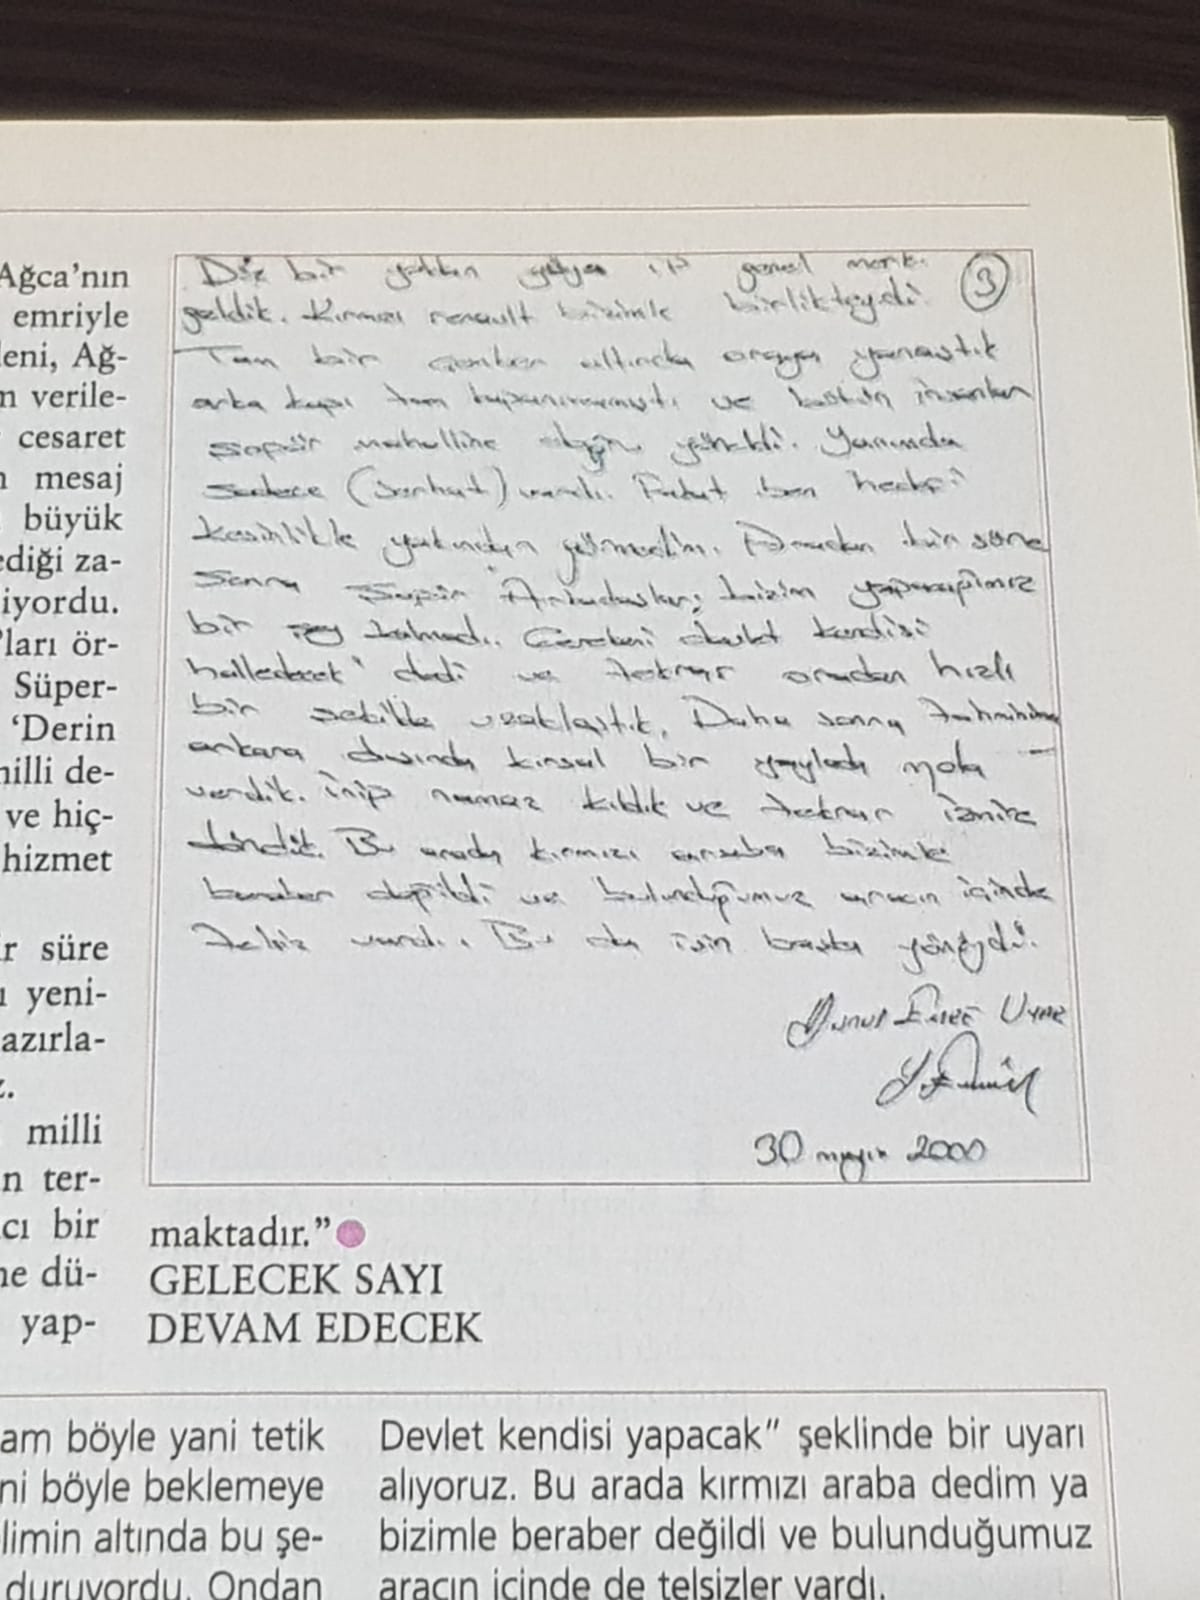 Ağca’nın
emriyle
leni, Ağ-
n verile-
cesaret
mesaj
büyük
ediği za-
iyordu.
’ları ör-
Süper-
‘Derin
nilli de-
ve hiç-
hizmet
ir süre
ı yeni-
azırla-
z.
milli
n ter-
cı bir
ne dü-
yap-
Düz bir yoldan genel merk.
3
geldik. Kırmızı renault bizimle birlikteydi.
Tam bir altında oraya yanaştık
arka kapı tam ve bütün insanlar
mahalline yöneldi. Yanımda
sadece (Serhat) vardı. Fakat ben hedefi
kesinlikle yakından görmedim. Aradan bir süre
sonra Arkadaşlar; bizim yapacağımız
bir şey kalmadı. Gerekeni devlet kendisi
halledecek' dedi ve tekrar oradan hızlı
bir şekilde uzaklaştık. Daha sonra
ankara dışında kırsal bir yaylada mola
verdik. İnip namaz kıldık ve tekrar izmite
döndük. Bu arada kırmızı araba bizimle
beraber değildi ve bulunduğumuz aracın içinde
telsiz vardı. Bu da işin başka yönüydü.
Yunus Emre Uyar
30 mayıs 2000
maktadır.”
GELECEK SAYI
DEVAM EDECEK
am böyle yani tetik
ni böyle beklemeye
limin altında bu şe-
duruyordu. Ondan
Devlet kendisi yapacak” şeklinde bir uyarı
alıyoruz. Bu arada kırmızı araba dedim ya
bizimle beraber değildi ve bulunduğumuz
aracın içinde de telsizler vardı.